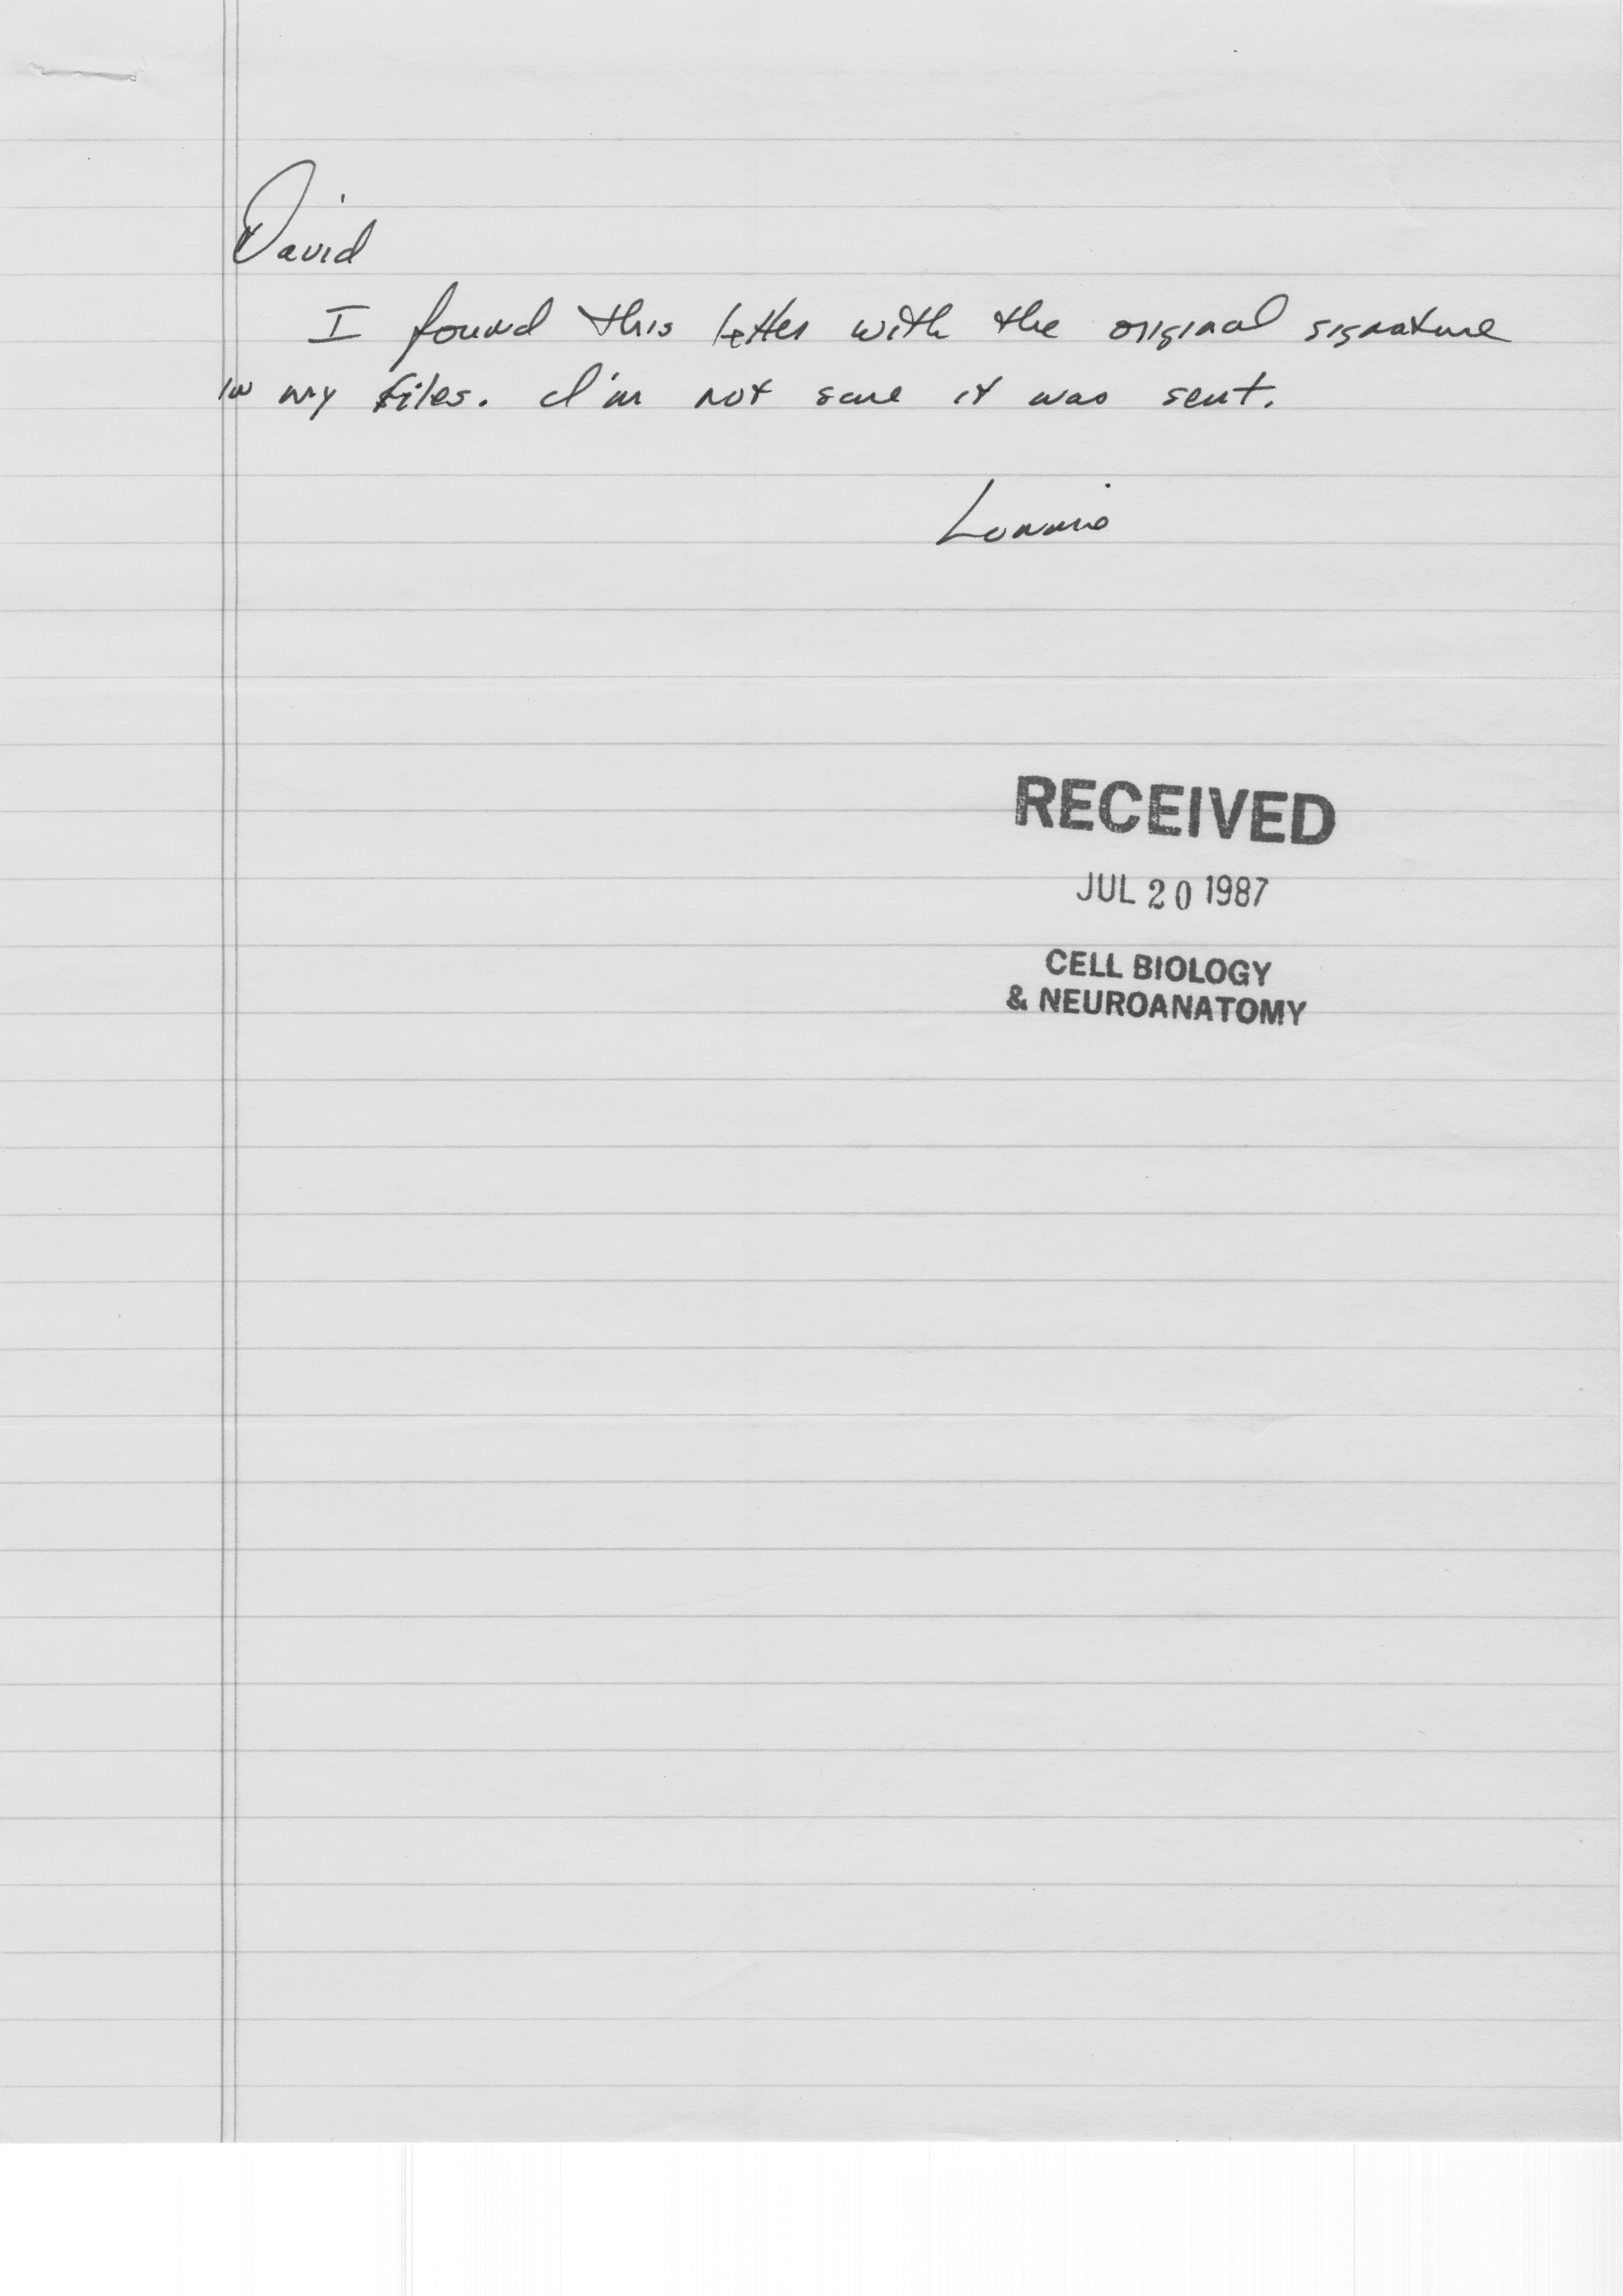 David
I found this letter with the original signature
in my files. I'm not sure it was sent.
Lonnie
RECEIVED
JUL 20 1987
CELL BIOLOGY
& NEUROANATOMY